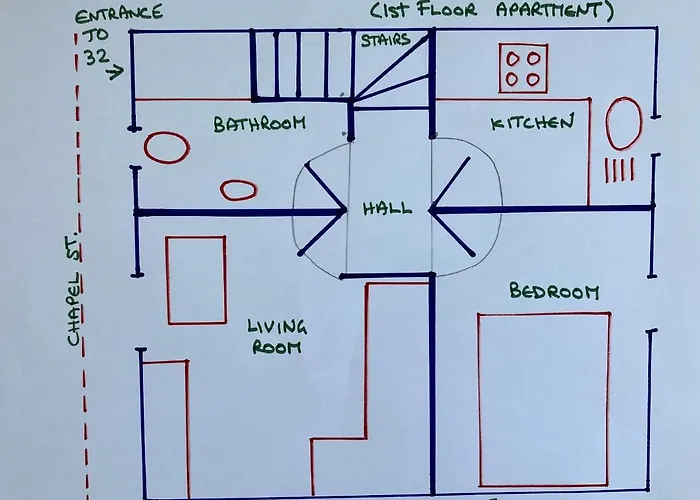 ENTRANCE
TO
32
(1ST FLOOR APARTMENT)
STAIRS
BATHROOM
KITCHEN
HALL
CHAPEL ST.
BEDROOM
LIVING
ROOM